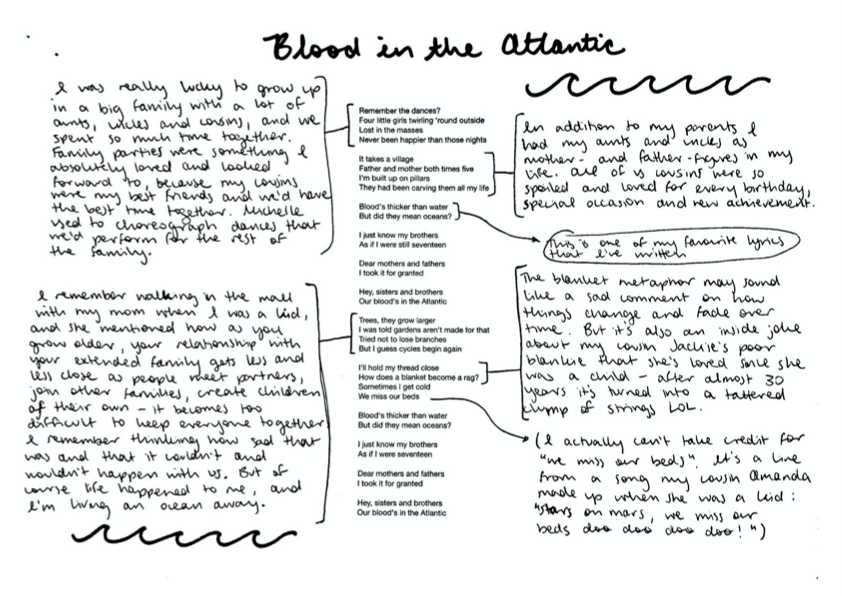 Blood in the Atlantic
I was really lucky to grow up
in a big family with a lot of
aunts, uncles and cousins, and we
spent so much time together.
Family parties were something I
absolutely loved and looked
forward to, because my cousins
were my best friends and we'd have
the best time together. Michelle
used to choreograph dances that
we'd perform for the rest of
the family.
I remember walking in the mall
with my mom when I was a kid,
and she mentioned how as you
grow older, your relationship with
your extended family gets less and
less close as people meet partners,
join other families, create children
of their own – it becomes too
difficult to keep everyone together
I remember thinking how sad that
was and that it couldn't and
wouldn't happen with us. But of
course life happened to me, and
I'm living an ocean away.
Remember the dances?
Four little girls twirling 'round outside
Lost in the masses
Never been happier than those nights
It takes a village
Father and mother both times five
I'm built up on pillars
They had been carving them all my life
Blood's thicker than water
But did they mean oceans?
I just know my brothers
As if I were still seventeen
Dear mothers and fathers
I took it for granted
Hey, sisters and brothers
Our blood's in the Atlantic
Trees, they grow larger
I was told gardens aren't made for that
Tried not to lose branches
But I guess cycles begin again
I'll hold my thread close
How does a blanket become a rag?
Sometimes I get cold
We miss our beds
Blood's thicker than water
But did they mean oceans?
I just know my brothers
As if I were seventeen
Dear mothers and fathers
I took it for granted
Hey, sisters and brothers
Our blood's in the Atlantic
In addition to my parents I
had my aunts and uncles as
mother- and father-figures in my
life. All of us cousins were so
spoiled and loved for every birthday,
special occasion and new achievement.
This is one of my favourite lyrics
that I've written
The blanket metaphor may sound
like a sad comment on how
things change and fade over
time. But it's also an inside joke
about my cousin Jackie's poor
blankie that she's loved since she
was a child – after almost 30
years it's turned into a tattered
clump of strings LOL.
(I actually can't take credit for
"we miss our beds". It's a line
from a song my cousin Amanda
made up when she was a kid:
"stars on mars, we miss our
beds doo doo doo doo!")